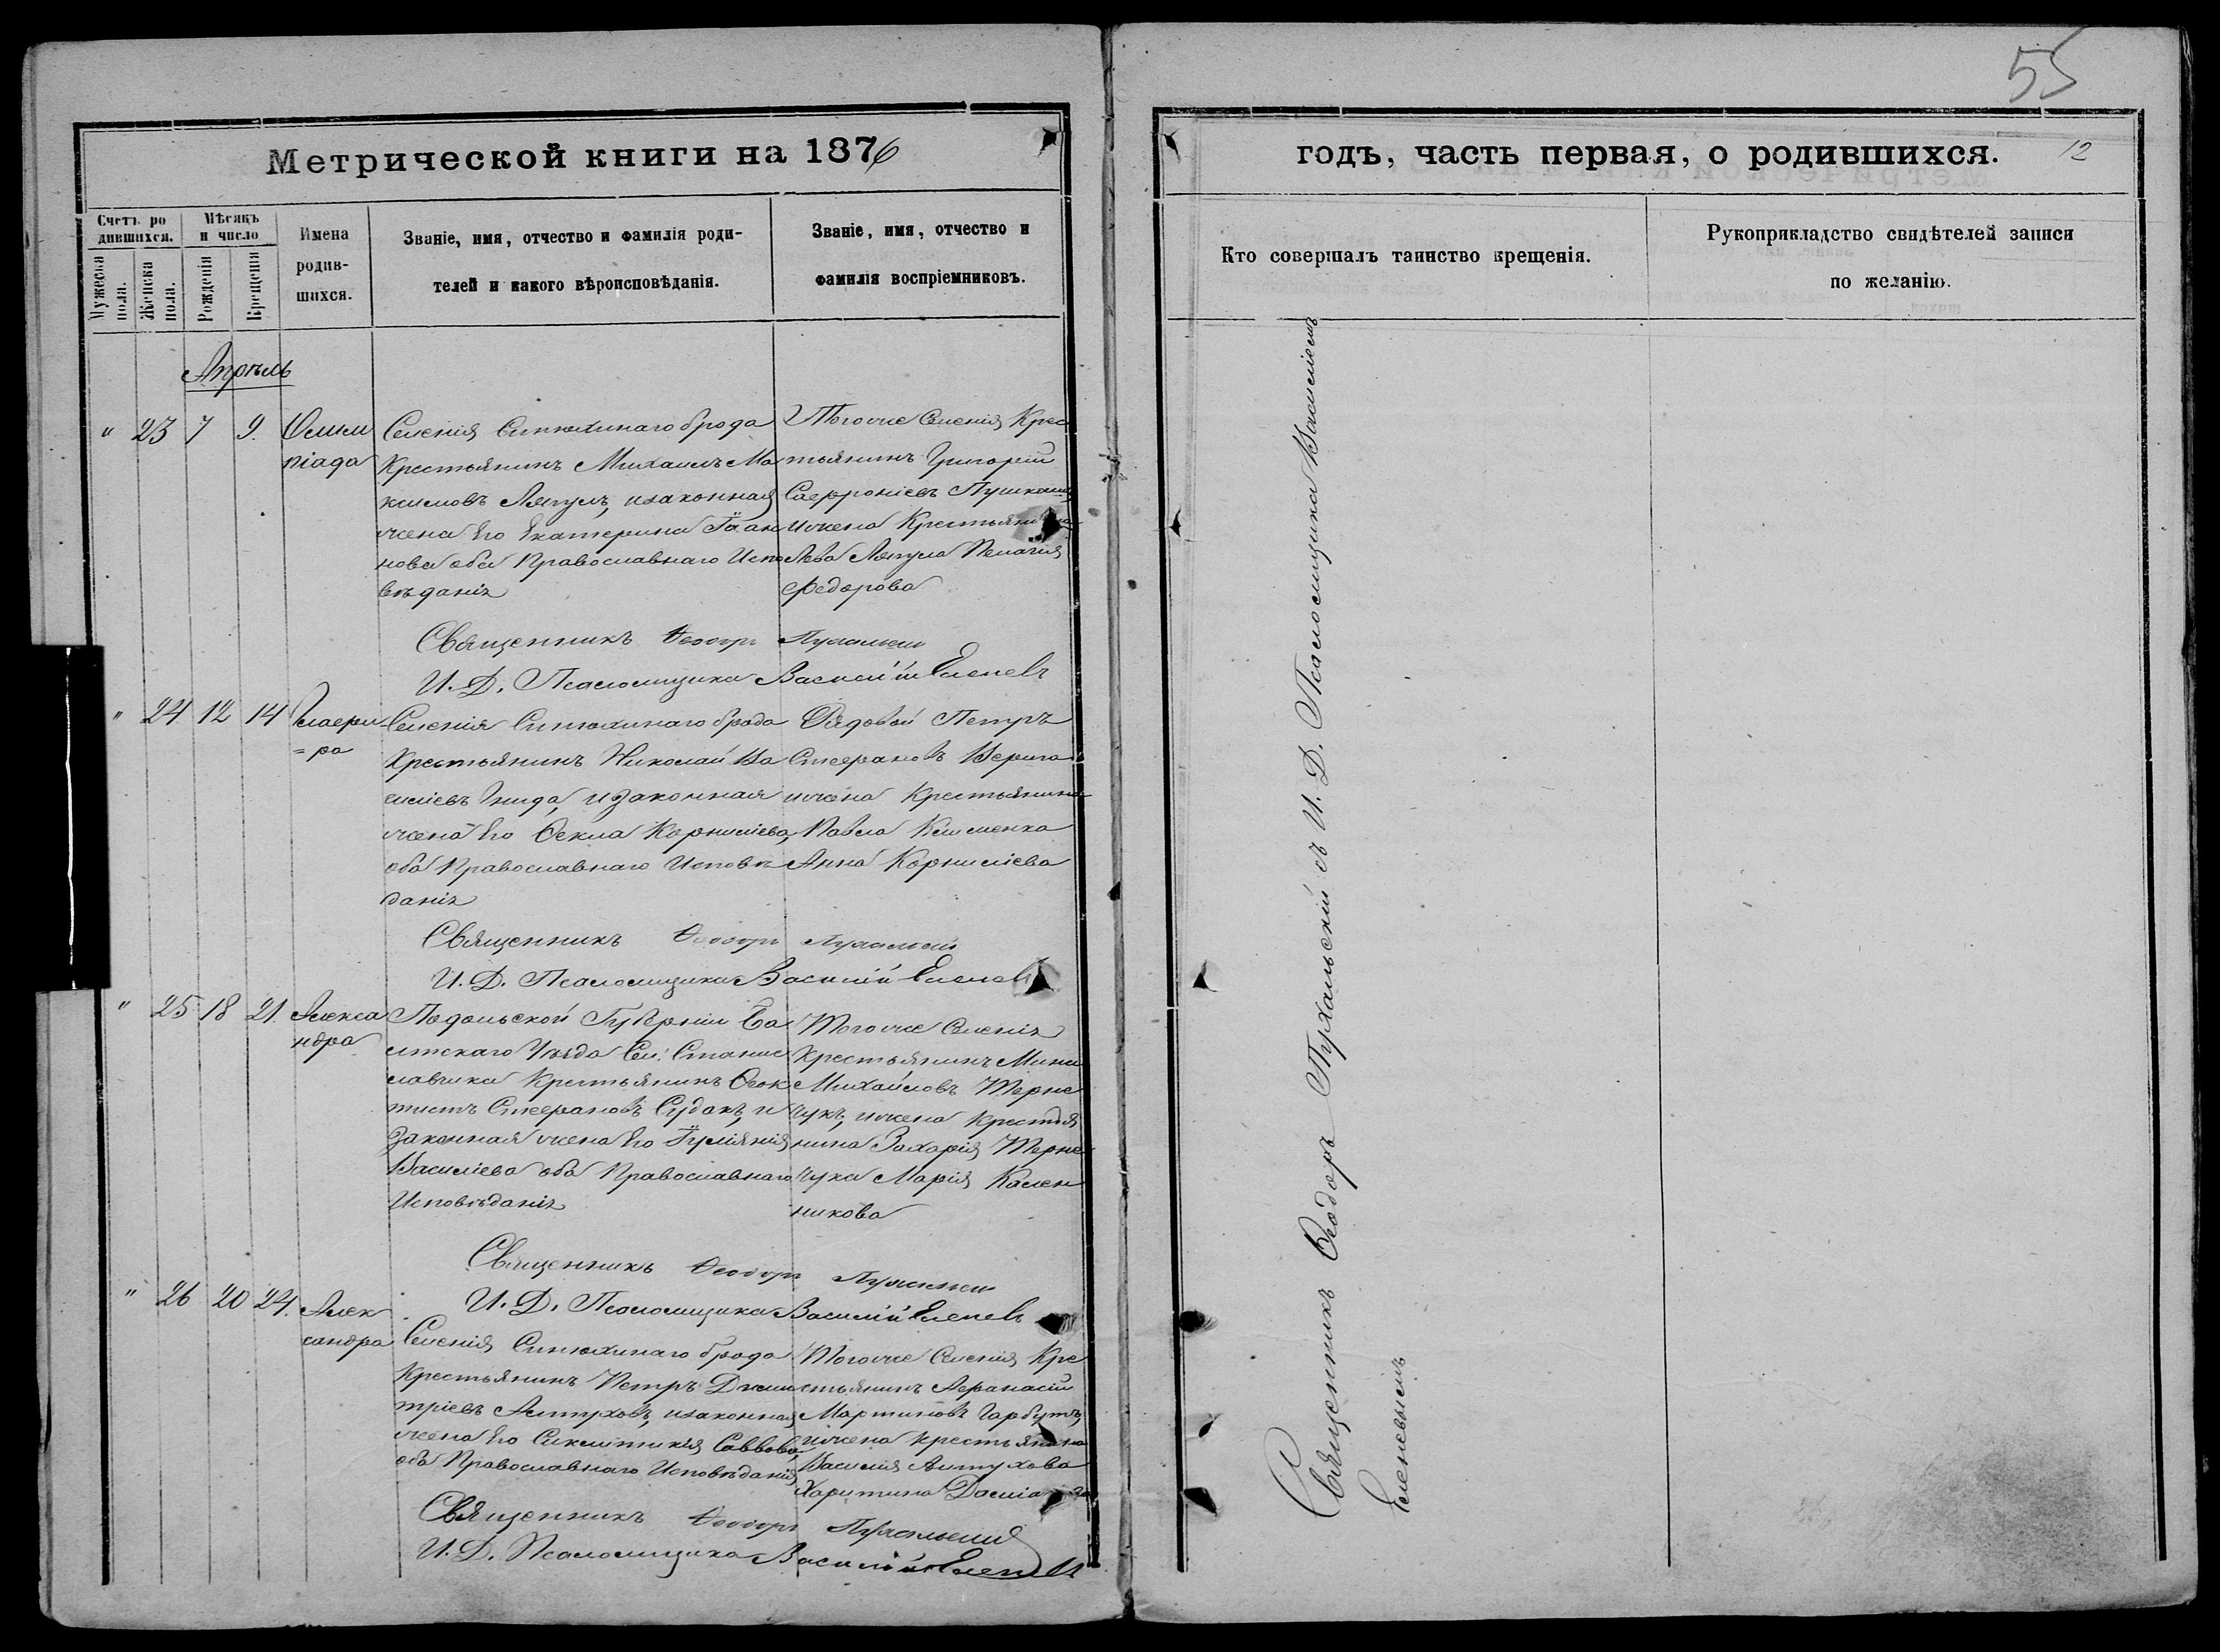 55
Метрической книги на 1876
годъ, часть первая, о родившихся. 12
Счетъ родившихся.
Мужеска пола.
Женска пола.
Мѣсяцъ и число
Рожденія
Крещенія
Имена родив-
шихся.
Званіе, имя, отчество и фамилія роди-
телей и какого вѣроисповѣданія.
Званіе, имя, отчество и
фамилія воспріемниковъ.
Кто совершалъ таинство крещенія.
Рукоприкладство свидѣтелей записи
по желанію.
Апрѣль
" 23 7 9. Олим
піада
Селенія Синюхинаго брода
Крестьянинъ Михаилъ Ма
ксимовъ Ляпулъ, и законная
жена Его Екатерина Іоан
нова оба Православнаго Испо
вѣданія
Тогоже Селенія Крес
тьянинъ Григорій
Софроніевъ
и жена Крестьянина
Льва Ляпула Пелагія
Федорова
Священникъ Ѳеодоръ Пухальскій
И. Д. Псаломщика Василій Еленевъ
" 24 12 14 Глафи
=ра
Селенія Синюхинаго брода
Крестьянинъ Николай Ва
силіевъ Гнида, и законная
жена Его Ѳекла Корниліева,
оба Православнаго Исповѣ
данія
Рядовой Петръ
Стефановъ Верига
и жена Крестьянина
Павла Клименка
Анна Корниліева
Священникъ Ѳеодоръ Пухальскій
И. Д. Псаломщика Василій Еленевъ
" 25 18 21. Алекса
ндра
Подольской Губерніи Ба
лтскаго Уѣзда Сел. Станис
лавчика Крестьянинъ Ѳеок
тистъ Стефановъ Судакъ, и
законная жена Его Іуліянія
Василіева оба Православнаго
Исповѣданія
Тогоже Селенія
Крестьянинъ Мина
Михайловъ Терне
чукъ, и жена Крестья
нина Захарія Терне
чука Марія Кален
никова
Священникъ Ѳеодоръ Пухальскій
И. Д. Псаломщика Василій Еленевъ
" 26 20 24. Алек
сандра
Селенія Синюхинаго брода
Крестьянинъ Петръ Дими
тріевъ Алтуховъ, и законная
жена Его Синклитикія Саввова,
оба Православнаго Исповѣданія
Тогоже Селенія Кре
стьянинъ Афанасій
Мартиновъ Гарбузъ,
и жена крестьянина
Василія Алтухова
Харитина
Священникъ Ѳеодоръ Пухальскій
И. Д. Псаломщика Василій Еленевъ
Священникъ Ѳеодоръ Пухальскій съ И. Д. Псаломщика Василіемъ
Еленевымъ